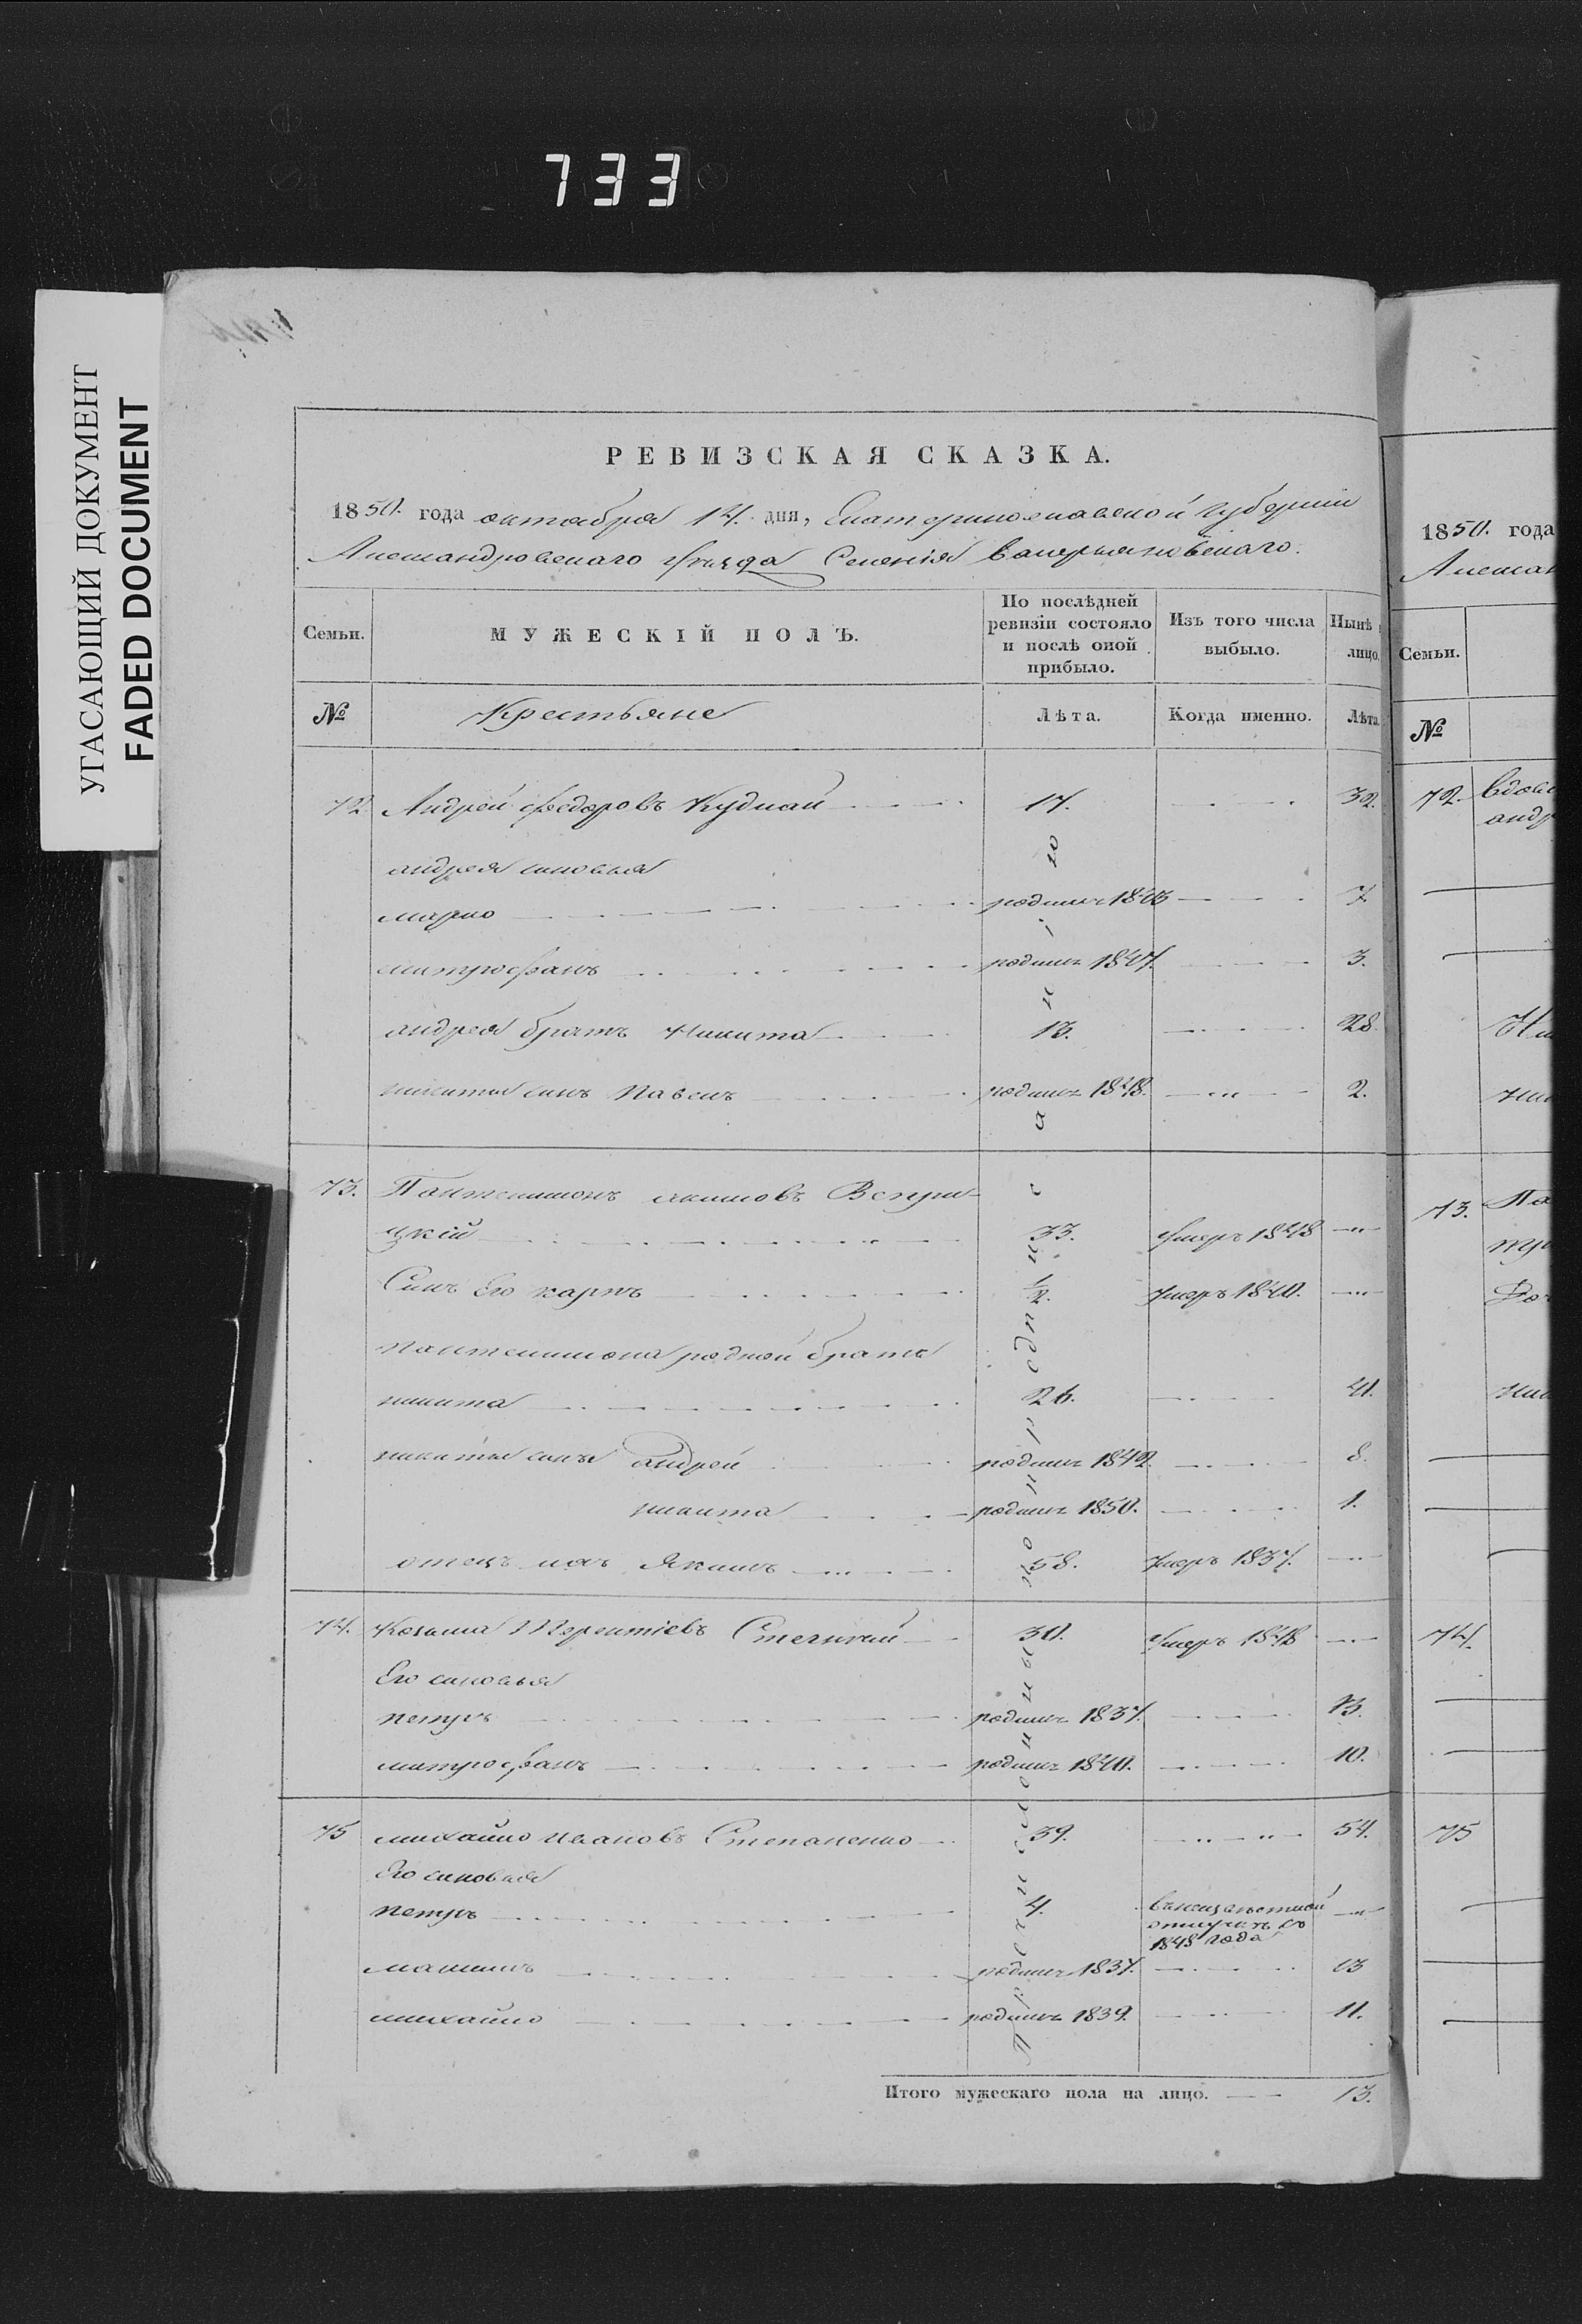 733
УГАСАЮЩИЙ ДОКУМЕНТ
FADED DOCUMENT
РЕВИЗСКАЯ СКАЗКА.
1850. года октября 14. дня, Екатеринославской губернии
Александровскаго уѣзда Селенія
Семьи.
МУЖЕСКІЙ ПОЛЪ.
По послѣдней ревизіи состояло и послѣ оной прибыло.
Изъ того числа выбыло.
Нынѣ лицо.
№
Крестьяне
Лѣта.
Когда именно.
Лѣта.
72. Андрей Федоровъ Кудлай 17. 32.
андрея сыновья
марко родился 1843 7.
митрофанъ родился 1847. 3.
андрея братъ Никита 13. 28.
никиты сынъ Павелъ родился 1848. 2.
73. Пантелимонъ акимовъ Вепри-
цкій 33. умеръ 1848
Сынъ Его карпъ ½. умеръ 1840.
пантелимона родной братъ
никита 26. 41.
никиты сыны андрей родился 1842. 8.
никита родился 1850. 1.
отецъ ихъ Якимъ 58. умеръ 1837.
74. Козьма Терентіевъ 30. умеръ 1848
Его сыновья
петръ родился 1837. 13.
митрофанъ родился 1840. 10.
75 михайло ивановъ Степаненко 39. 54.
Его сыновья
петръ 4. въ неизвѣстной
отлучкѣ съ
1848 года
максимъ родился 1837. 13
михайло родился 1839. 11.
Итого мужескаго пола на лицо. 13.
1850. года
Семьи.
№
72.
73.
74.
75